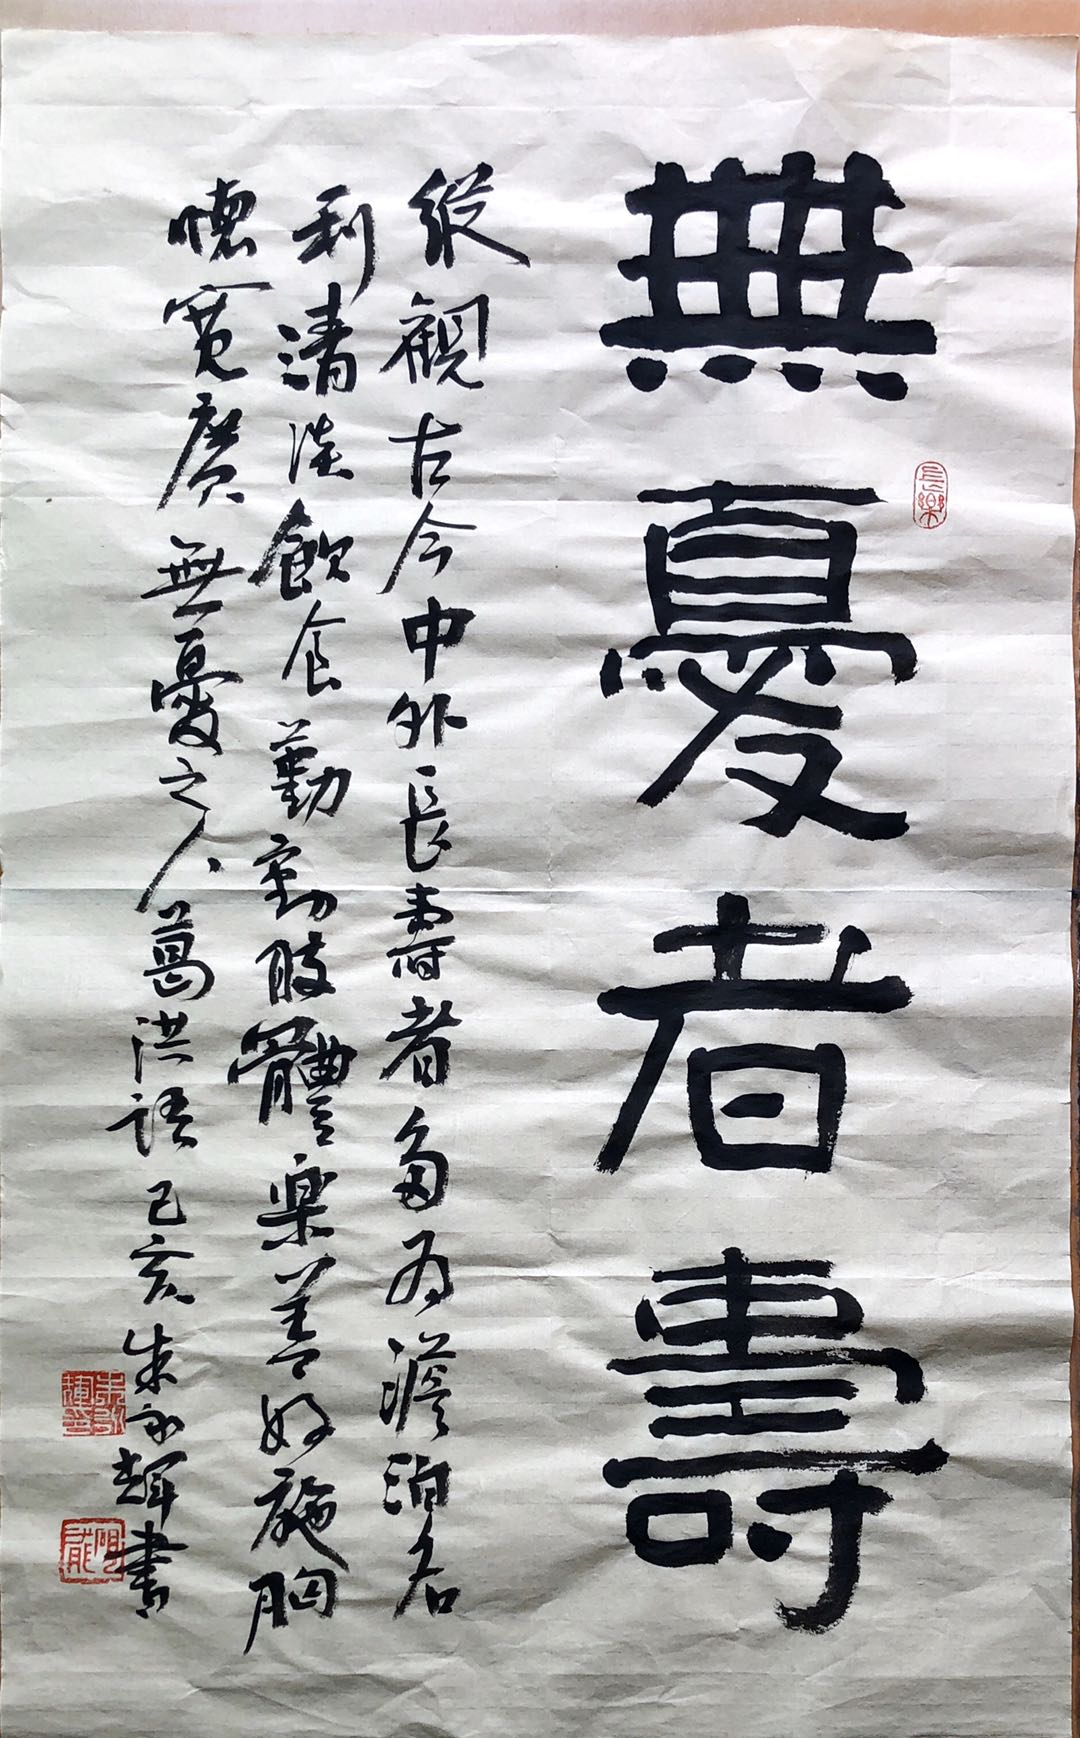 無憂者壽
長樂
縱觀古今中外長壽者多為澹泊名
利清淡飲食勤動肢體樂善好施胸
懷寬廣無憂之人葛洪語己亥朱永輝書